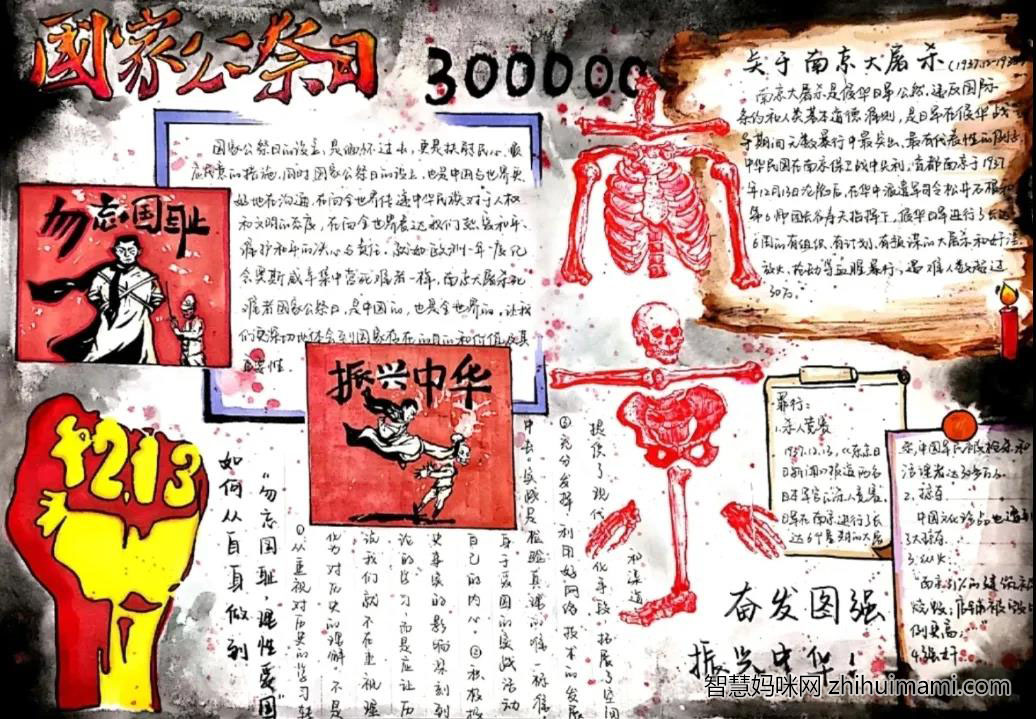 國家公祭日
300000
关于南京大屠杀(1937.12-1938
南京大屠杀是侵华日军公然违反国际
条约和人类基本道德准则,是日军在侵华战
争期间无数暴行中最突出、最有代表性的
中华民国在南京保卫战中失利,首都南京于1937
年12月13日沦陷后,在华中派遣军司令松井石根和
第6师团长谷寿夫指挥下,侵华日军进行了长达
6周的有组织、有计划、有预谋的大屠杀和奸淫、
放火、抢劫等血腥暴行,遇难人数超过
30万。
国家公祭日的设立,是缅怀过去,更是
的措施,同时国家公祭日的设立,也是中国与世界更
好地在沟通,在向全世界传递中华民族对于人权
和文明的态度,在向全世界表达我们热爱和平、
维护和平的决心与责任,就如欧洲一年一度纪
念奥斯威辛集中营死难者一样,南京大屠杀死
难者国家公祭日,是中国的,也是全世界的,让我
们更深切地体会到国家存在的目的和价值及其
重要性.
勿忘国耻
振兴中华
12.13
如何从自身做到
“勿忘国耻,理性爱国”
①从重视对历史的学习转
化为对历史的理解,不是
说我们就不在重视理
论的学习,而是应让历
史事实的影响深刻到
自己的内心。②积极投
身于爱国的实践活动
中去。实践是检验真理的唯一标准
③充分发挥、利用好网络技术的发展
提供了现代化手段,拓展了空间
和渠道
罪行:
1.杀人竞赛
1937.12.13,《东京日
日新闻》报道两名
日本军官“杀人竞赛”
日军在南京进行了长
达6个星期的大屠
杀,中国军民被枪杀和
活埋者达30多万人.
2.掠夺
中国文化珍品也遭到
了大掠夺.
3.纵火:
“南京1/3的建筑被
烧毁,店铺被毁
例更高,”
4.强奸……
奋发图强
振兴中华!
智慧妈咪网 zhihuimami.com